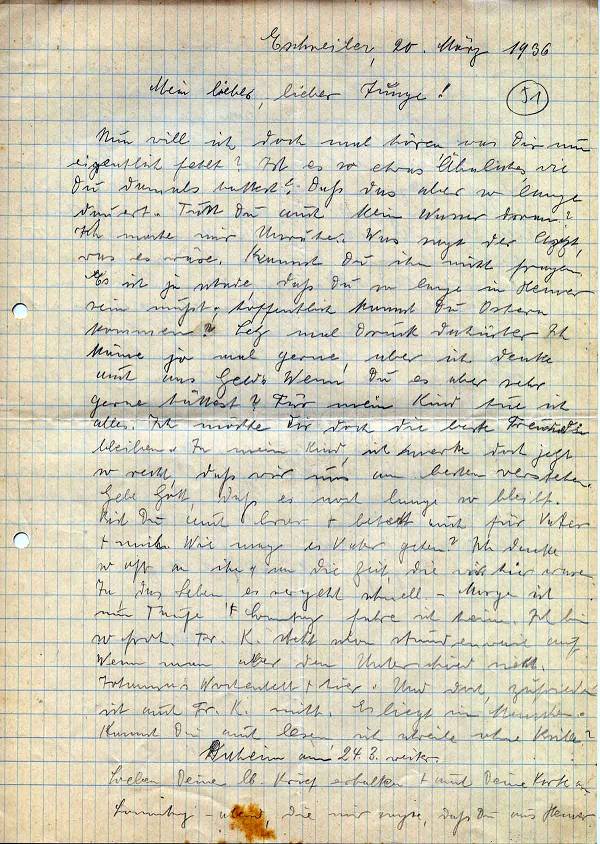 Eschweiler, 20. März 1936
Mein lieber, lieber Junge!
51
Nun will ich doch mal hören was Dir nun
eigentlich fehlt? Ist es so etwas Ähnliches wie
Du damals hattest? Daß das aber so lange
dauert. Tust Du auch kein Wasser daran?
Ich mache mir Unruhe. Was sagt der Arzt,
was es wäre. Kannst Du ihn nicht fragen.
Es ist ja schade, daß Du so lange in Hemer
sein mußt. Hoffentlich kannst Du Ostern
kommen? Setz mal Druck dahinter Ich
käme ja mal gerne, aber ich denke
auch ans Geld. Wenn Du es aber sehr
gerne hättest? Für mein Kind tue ich
alles. Ich möchte Dir doch die beste Freundin
bleiben. Ja mein Kind, ich merke doch jetzt
so recht, daß wir uns am besten verstehen.
Gebe Gott, daß es noch lange so bleibt.
Bist Du auch brav + betest auch für Vater
+ mich. Wie mag es Vater gehen? Ich denke
so oft an ihn + an die Zeit, die wir hier waren.
Ja das Leben es vergeht schnell. - Morge ist
nun Taufe + Sonntag fahre ich heim. Ich bin
so froh. Fr. K. steht schon stundenweise auf.
Wenn man aber den Unterschied sieht.
Johannas Wochenbett + hier. Und doch, zufrieden
ist auch Fr. K. nicht. Es liegt im Menschen.
Kannst Du auch lesen ich schreibe ohne Brille?
am 24.3. weiter.
Soeben Deine lb. Brief erhalten + auch Deine Karte am
Sonntag-abend, die mir sagte, daß Du aus Hemer